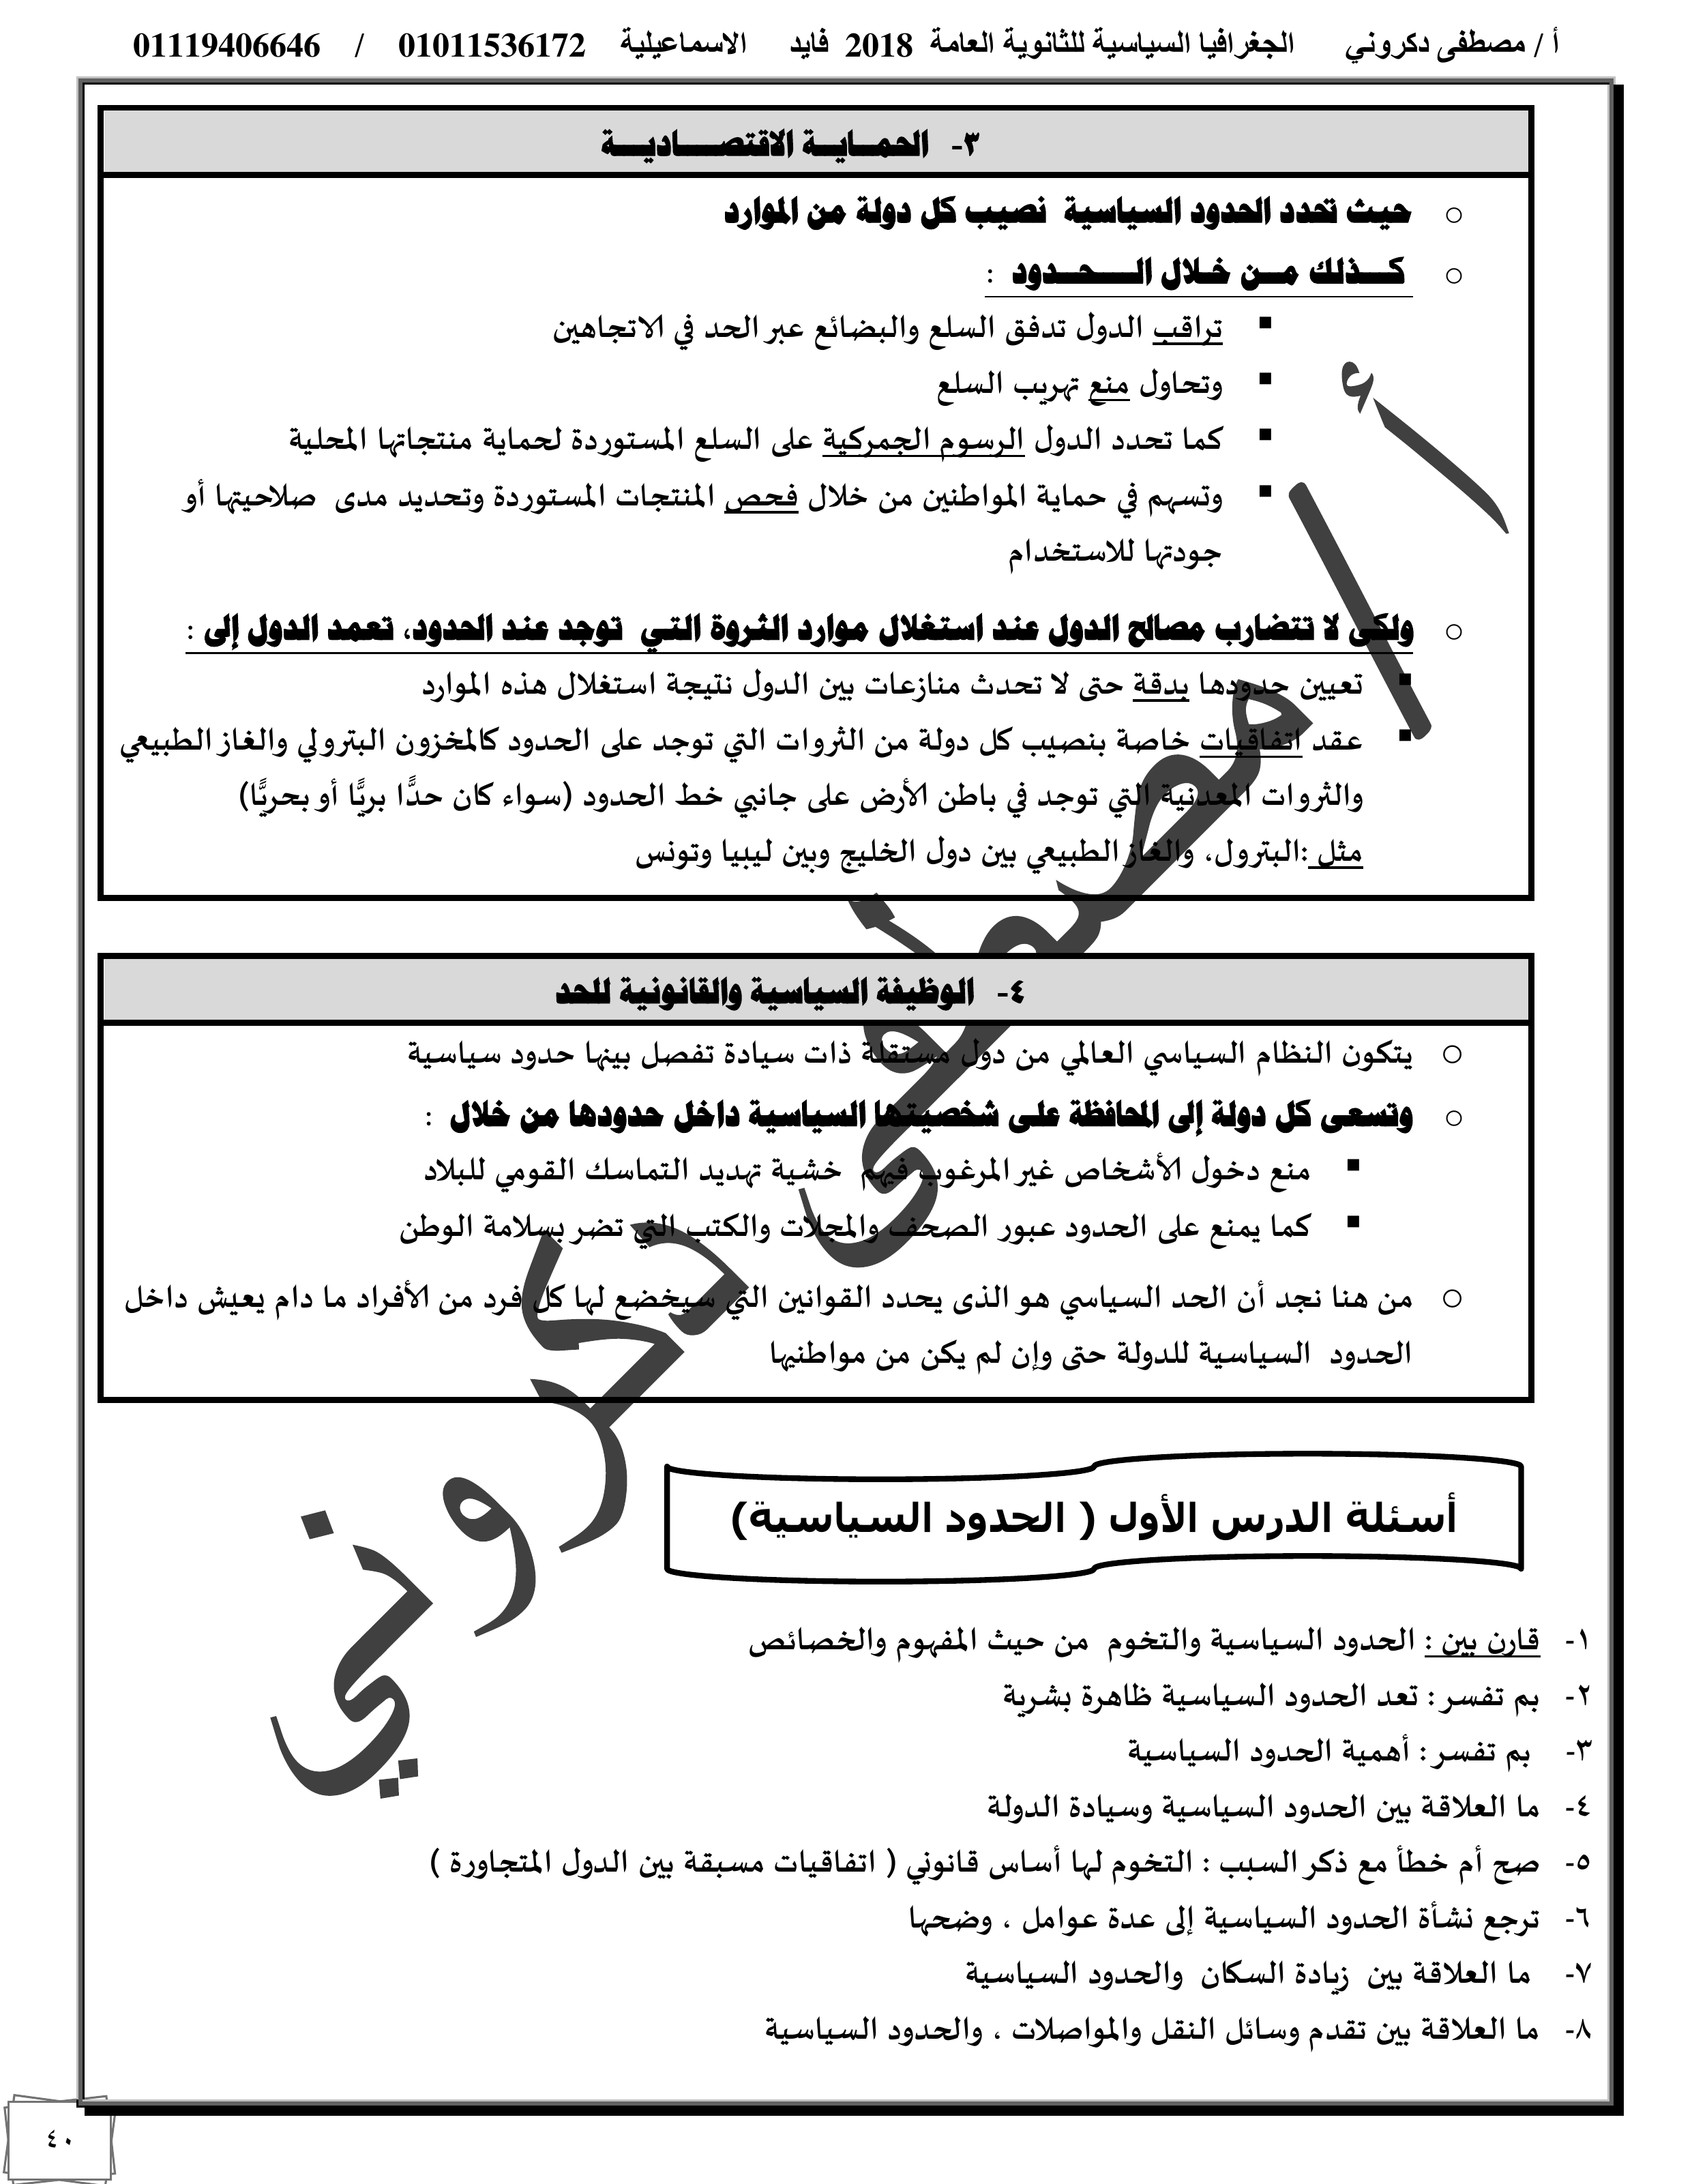 أ / مصطفى دكروني الجغرافيا السياسية للثانوية العامة 2018 فايد الاسماعيلية 01011536172 / 01119406646
٣- الحمـايـة الاقتصـــاديـــة
حيث تحدد الحدود السياسية نصيب كل دولة من الموارد
كـــذلك مـــن خـلال الـــحـــدود :
تراقب الدول تدفق السلع والبضائع عبر الحد في الاتجاهين
وتحاول منع تهريب السلع
كما تحدد الدول الرسوم الجمركية على السلع المستوردة لحماية منتجاتها المحلية
وتسهم في حماية المواطنين من خلال فحص المنتجات المستوردة وتحديد مدى صلاحيتها أو
جودتها للاستخدام
ولكى لا تتضارب مصالح الدول عند استغلال موارد الثروة التـي توجد عند الحدود، تعمد الدول إلى :
تعيين حدودها بدقة حتى لا تحدث منازعات بين الدول نتيجة استغلال هذه الموارد
عقد اتفاقيات خاصة بنصيب كل دولة من الثروات التي توجد على الحدود كالمخزون البترولي والغاز الطبيعي
والثروات المعدنية التي توجد في باطن الأرض على جانبي خط الحدود (سواء كان حدًّا بريًّا أو بحريًّا)
مثل :البترول، والغاز الطبيعي بين دول الخليج وبين ليبيا وتونس
٤- الوظيفة السياسية والقانونية للحد
يتكون النظام السياسي العالمي من دول مستقلة ذات سيادة تفصل بينها حدود سياسية
وتسعى كل دولة إلى المحافظة علـى شخصيتها السياسية داخل حدودها من خلال :
منع دخول الأشخاص غير المرغوب فيهم خشية تهديد التماسك القومي للبلاد
كما يمنع على الحدود عبور الصحف والمجلات والكتب التي تضر بسلامة الوطن
من هنا نجد أن الحد السياسي هو الذى يحدد القوانين التي سيخضع لها كل فرد من الأفراد ما دام يعيش داخل
الحدود السياسية للدولة حتى وإن لم يكن من مواطنيها
أ / مصطفى دكروني
أسئلة الدرس الأول ( الحدود السياسية)
١- قارن بين : الحدود السياسية والتخوم من حيث المفهوم والخصائص
٢- بم تفسر : تعد الحدود السياسية ظاهرة بشرية
٣- بم تفسر : أهمية الحدود السياسية
٤- ما العلاقة بين الحدود السياسية وسيادة الدولة
٥- صح أم خطأ مع ذكر السبب : التخوم لها أساس قانوني ( اتفاقيات مسبقة بين الدول المتجاورة )
٦- ترجع نشأة الحدود السياسية إلى عدة عوامل ، وضحها
٧- ما العلاقة بين زيادة السكان والحدود السياسية
٨- ما العلاقة بين تقدم وسائل النقل والمواصلات ، والحدود السياسية
٤٠